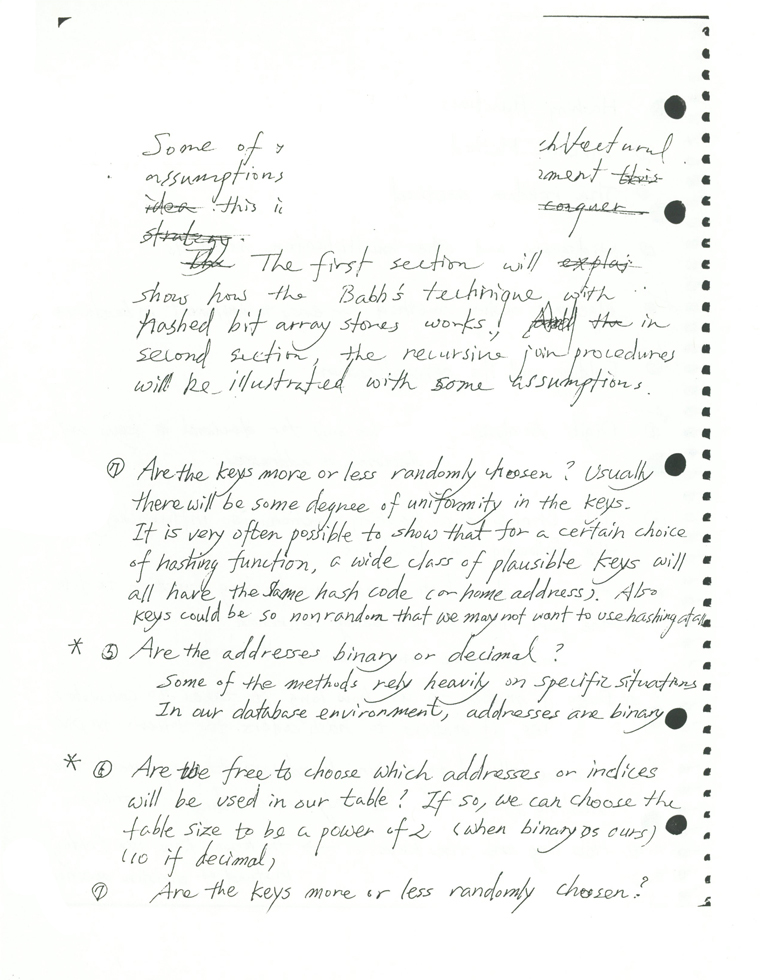 Some of
chitectural
assumptions
ment this
idea this i
conquer
strategy.
The The first section will explai
show how the Babb's technique with
hashed bit array stores works. And the in
second section, the recursive join procedures
will be illustrated with some assumptions.
⑦ Are the keys more or less randomly choosen? Usually
there will be some degree of uniformity in the keys.
It is very often possible to show that for a certain choice
of hashing function, a wide class of plausible keys will
all have the same hash code (or home address). Also
keys could be so nonrandom that we may not want to use hashing at all
* ⑤ Are the addresses binary or decimal?
Some of the methods rely heavily on specific situations
In our database environment, addresses are binary
* ⑥ Are we free to choose which addresses or indices
will be used in our table? If so, we can choose the
table size to be a power of 2 (when binary as ours)
(10 if decimal,
⑦ Are the keys more or less randomly choosen?